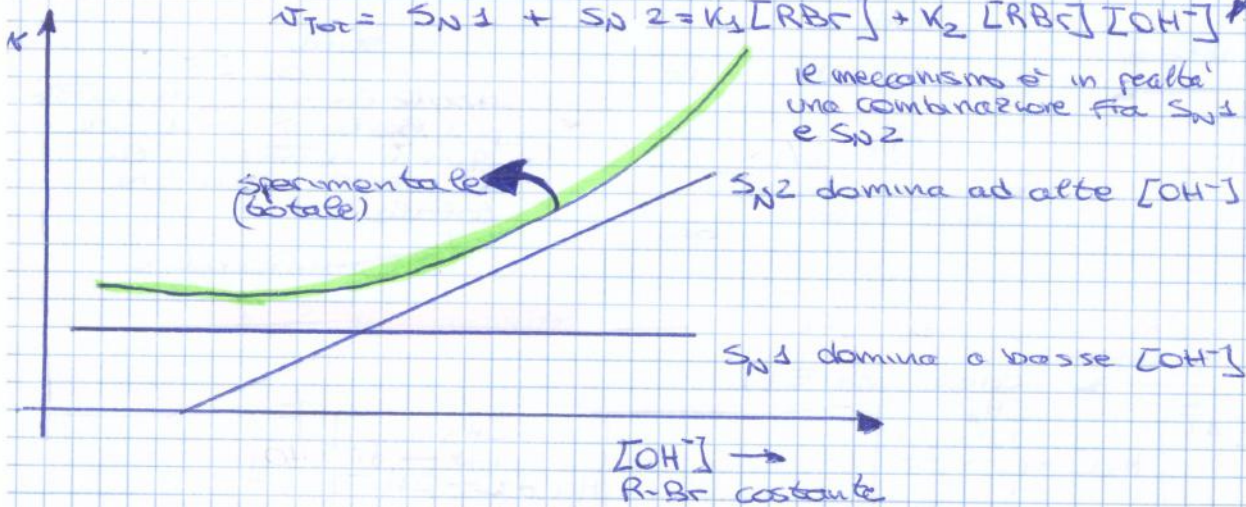 v
vTot = SN1 + SN2 = K1 [RBr] + K2 [RBr] [OH-]
il meccanismo è in realtà
una combinazione fra SN1
e SN2
sperimentale
(totale)
SN2 domina ad alte [OH-]
SN1 domina a basse [OH-]
[OH-] →
R-Br costante